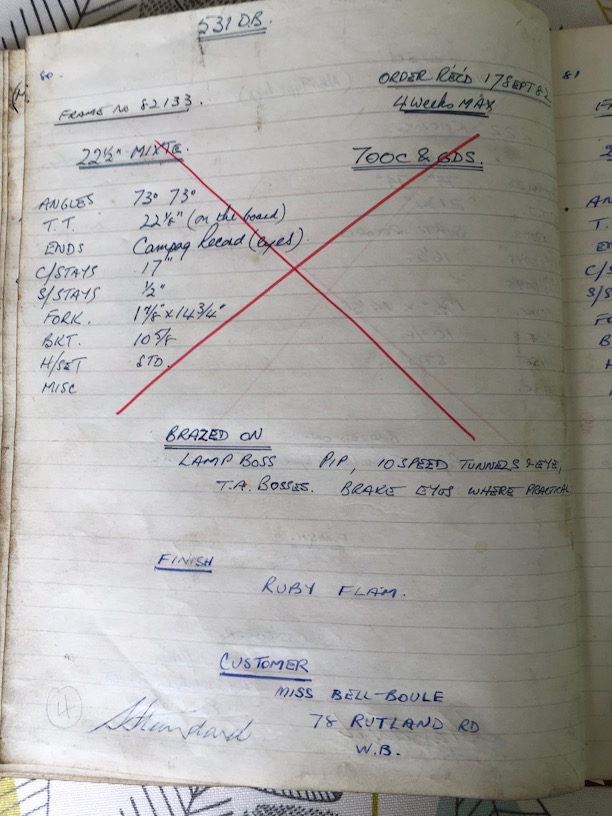 531 D.B.
80.
ORDER REC'D 17 SEPT 82
FRAME NO 82133.
4 WEEKS MAX
22½" MIXTE.
700C & GDS.
ANGLES 73° 73°
T.T. 22⅛" (on the board)
ENDS Campag Record (eyes)
C/STAYS 17"
S/STAYS ½"
FORK. x 14¾"
BKT. 10⅝
H/SET STD.
MISC
BRAZED ON
LAMP BOSS PIP, 10 SPEED TUNNELS & EYE,
T.A. BOSSES. BRAKE EYES WHERE PRACTICAL
FINISH
RUBY FLAM.
CUSTOMER
MISS BELL-BOULE
78 RUTLAND RD
W.B.
Standard
81
AN
T.
EN
C/S
S/S
FO
B
H